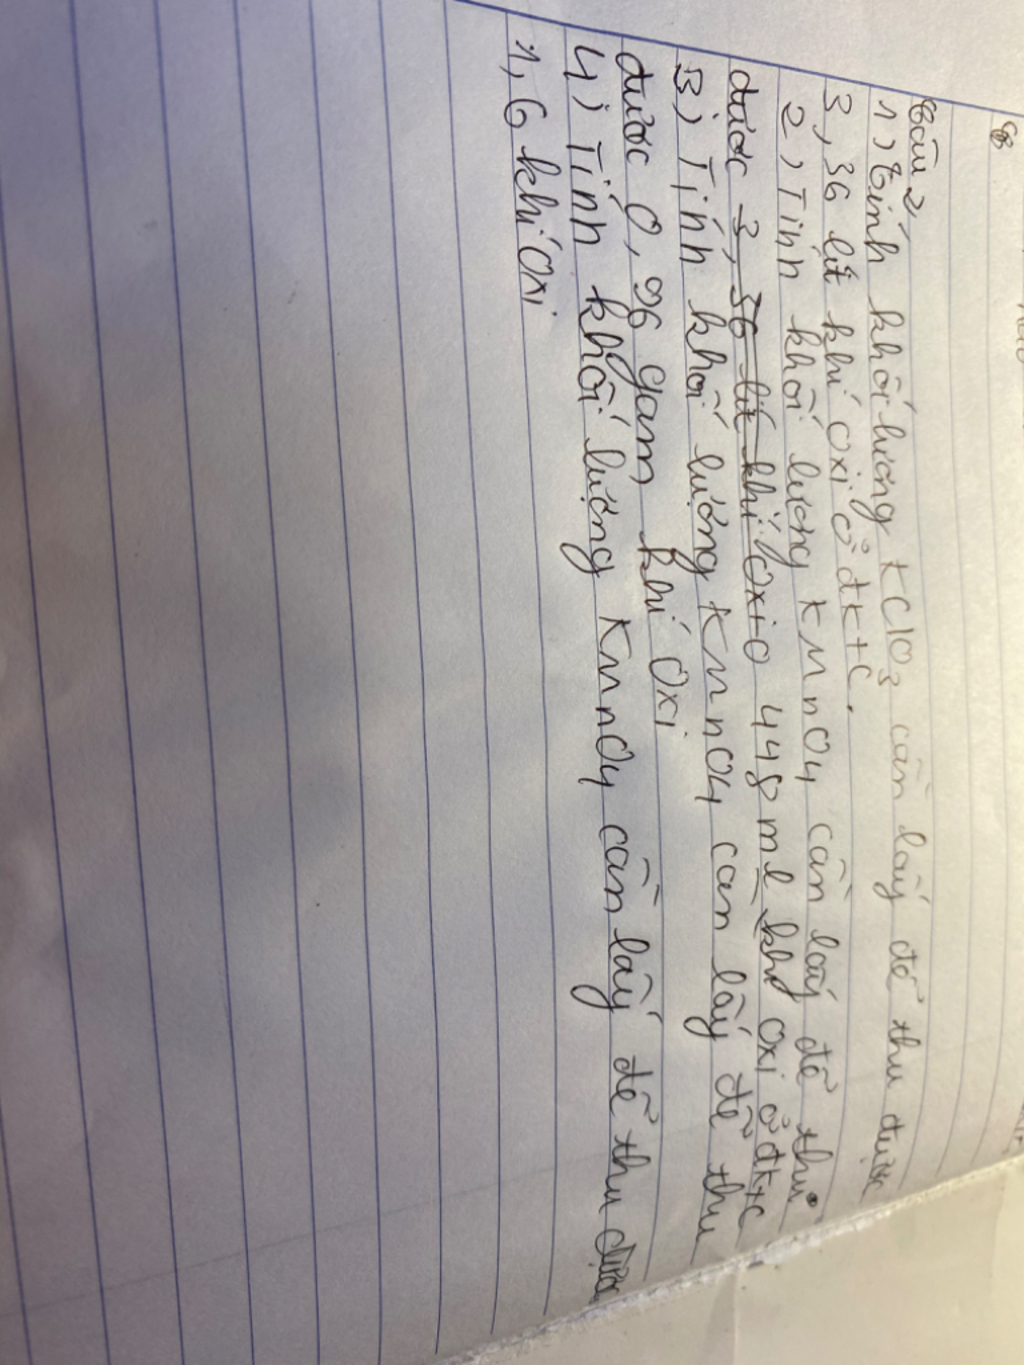 Câu 2
1, Tính khối lượng KClO3 cần lấy để thu được
3,36 lít khí oxi ở đktc.
2, Tính khối lượng KMnO4 cần lấy để thu
được 3,36 lít khí oxi 0 448 ml khí oxi ở đktc
3, Tính khối lượng KMnO4 can lấy để thu
được 0,96 gam khí oxi
4, Tính khối lượng KMnO4 cần lấy để thu được
1,6 khí oxi